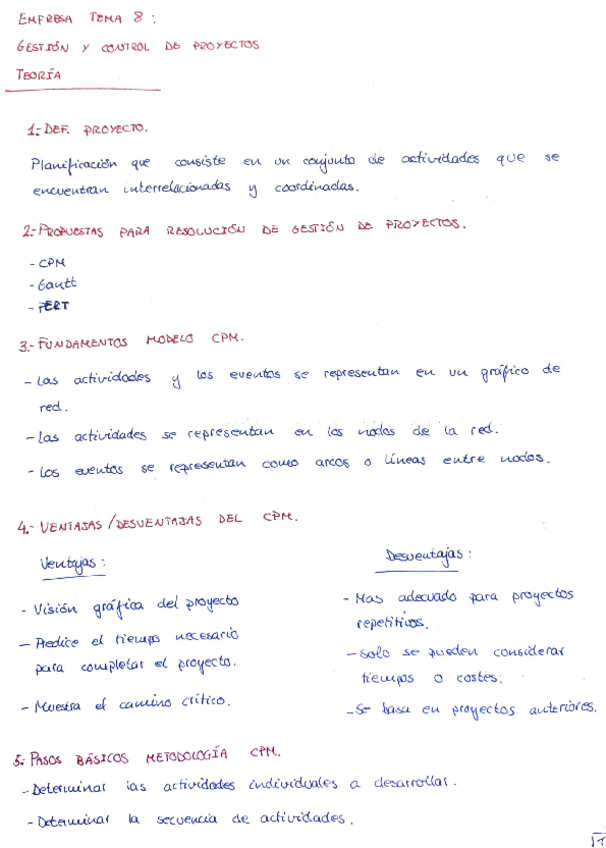 EMPRESA TEMA 8:
GESTIÓN Y CONTROL DE PROYECTOS
TEORÍA
1.- DEF. PROYECTO.
Planificación que consiste en un conjunto de actividades que se
encuentran interrelacionadas y coordinadas.
2.- PROPUESTAS PARA RESOLUCIÓN DE GESTIÓN DE PROYECTOS.
- CPM
- Gantt
- PERT
3.- FUNDAMENTOS MODELO CPM.
- Las actividades y los eventos se representan en un gráfico de
red.
- Las actividades se representan en los nodos de la red.
- Los eventos se representan como arcos o líneas entre nodos.
4.- VENTAJAS/DESVENTAJAS DEL CPM.
Ventajas:
- Visión gráfica del proyecto
- Predice el tiempo necesario
para completar el proyecto.
- Muestra el camino crítico.
Desventajas:
- Mas adecuado para proyectos
repetitivos.
- Solo se pueden considerar
tiempos o costes.
- Se basa en proyectos anteriores.
5.- PASOS BÁSICOS METODOLOGÍA CPM.
- Determinar las actividades individuales a desarrollar.
- Determinar la secuencia de actividades.